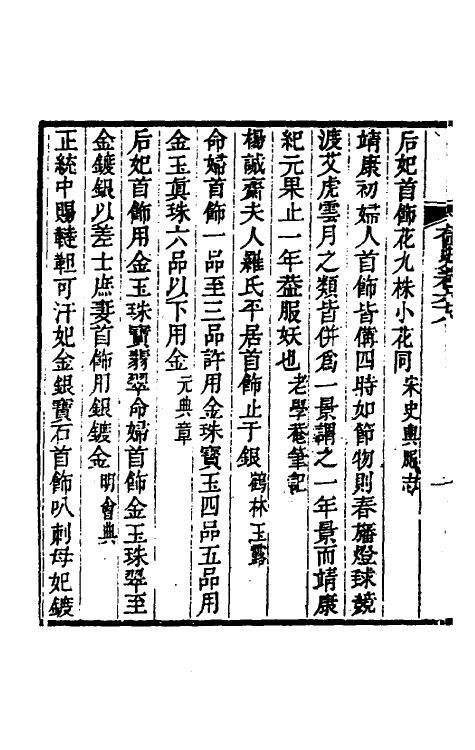 后妃首飾花九株小花同宋史輿服志
靖康初婦人首飾皆備四時如節物則春旛燈球競
渡艾虎雲月之類皆併為一景謂之一年景而靖康
紀元果止一年葢服妖也老學菴筆記
楊誠齋夫人羅氏平居首飾止于銀鶴林玉露
命婦首飾一品至三品許用金珠寶玉四品五品用
金玉眞珠六品以下用金元典章
后妃首飾用金玉珠寶翡翠命婦首飾金玉珠翠至
金鍍銀以差士庶妻首飾用銀鍍金明會典
正統中賜韃靼可汗妃金銀寶石首飾叭刺母妃鍍